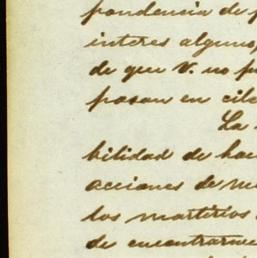 pondencia de p
interes alguno,
de que V. no pu
pasan en cile
La
bilidad de hac
acciones de m
los martirios
de encontrarme